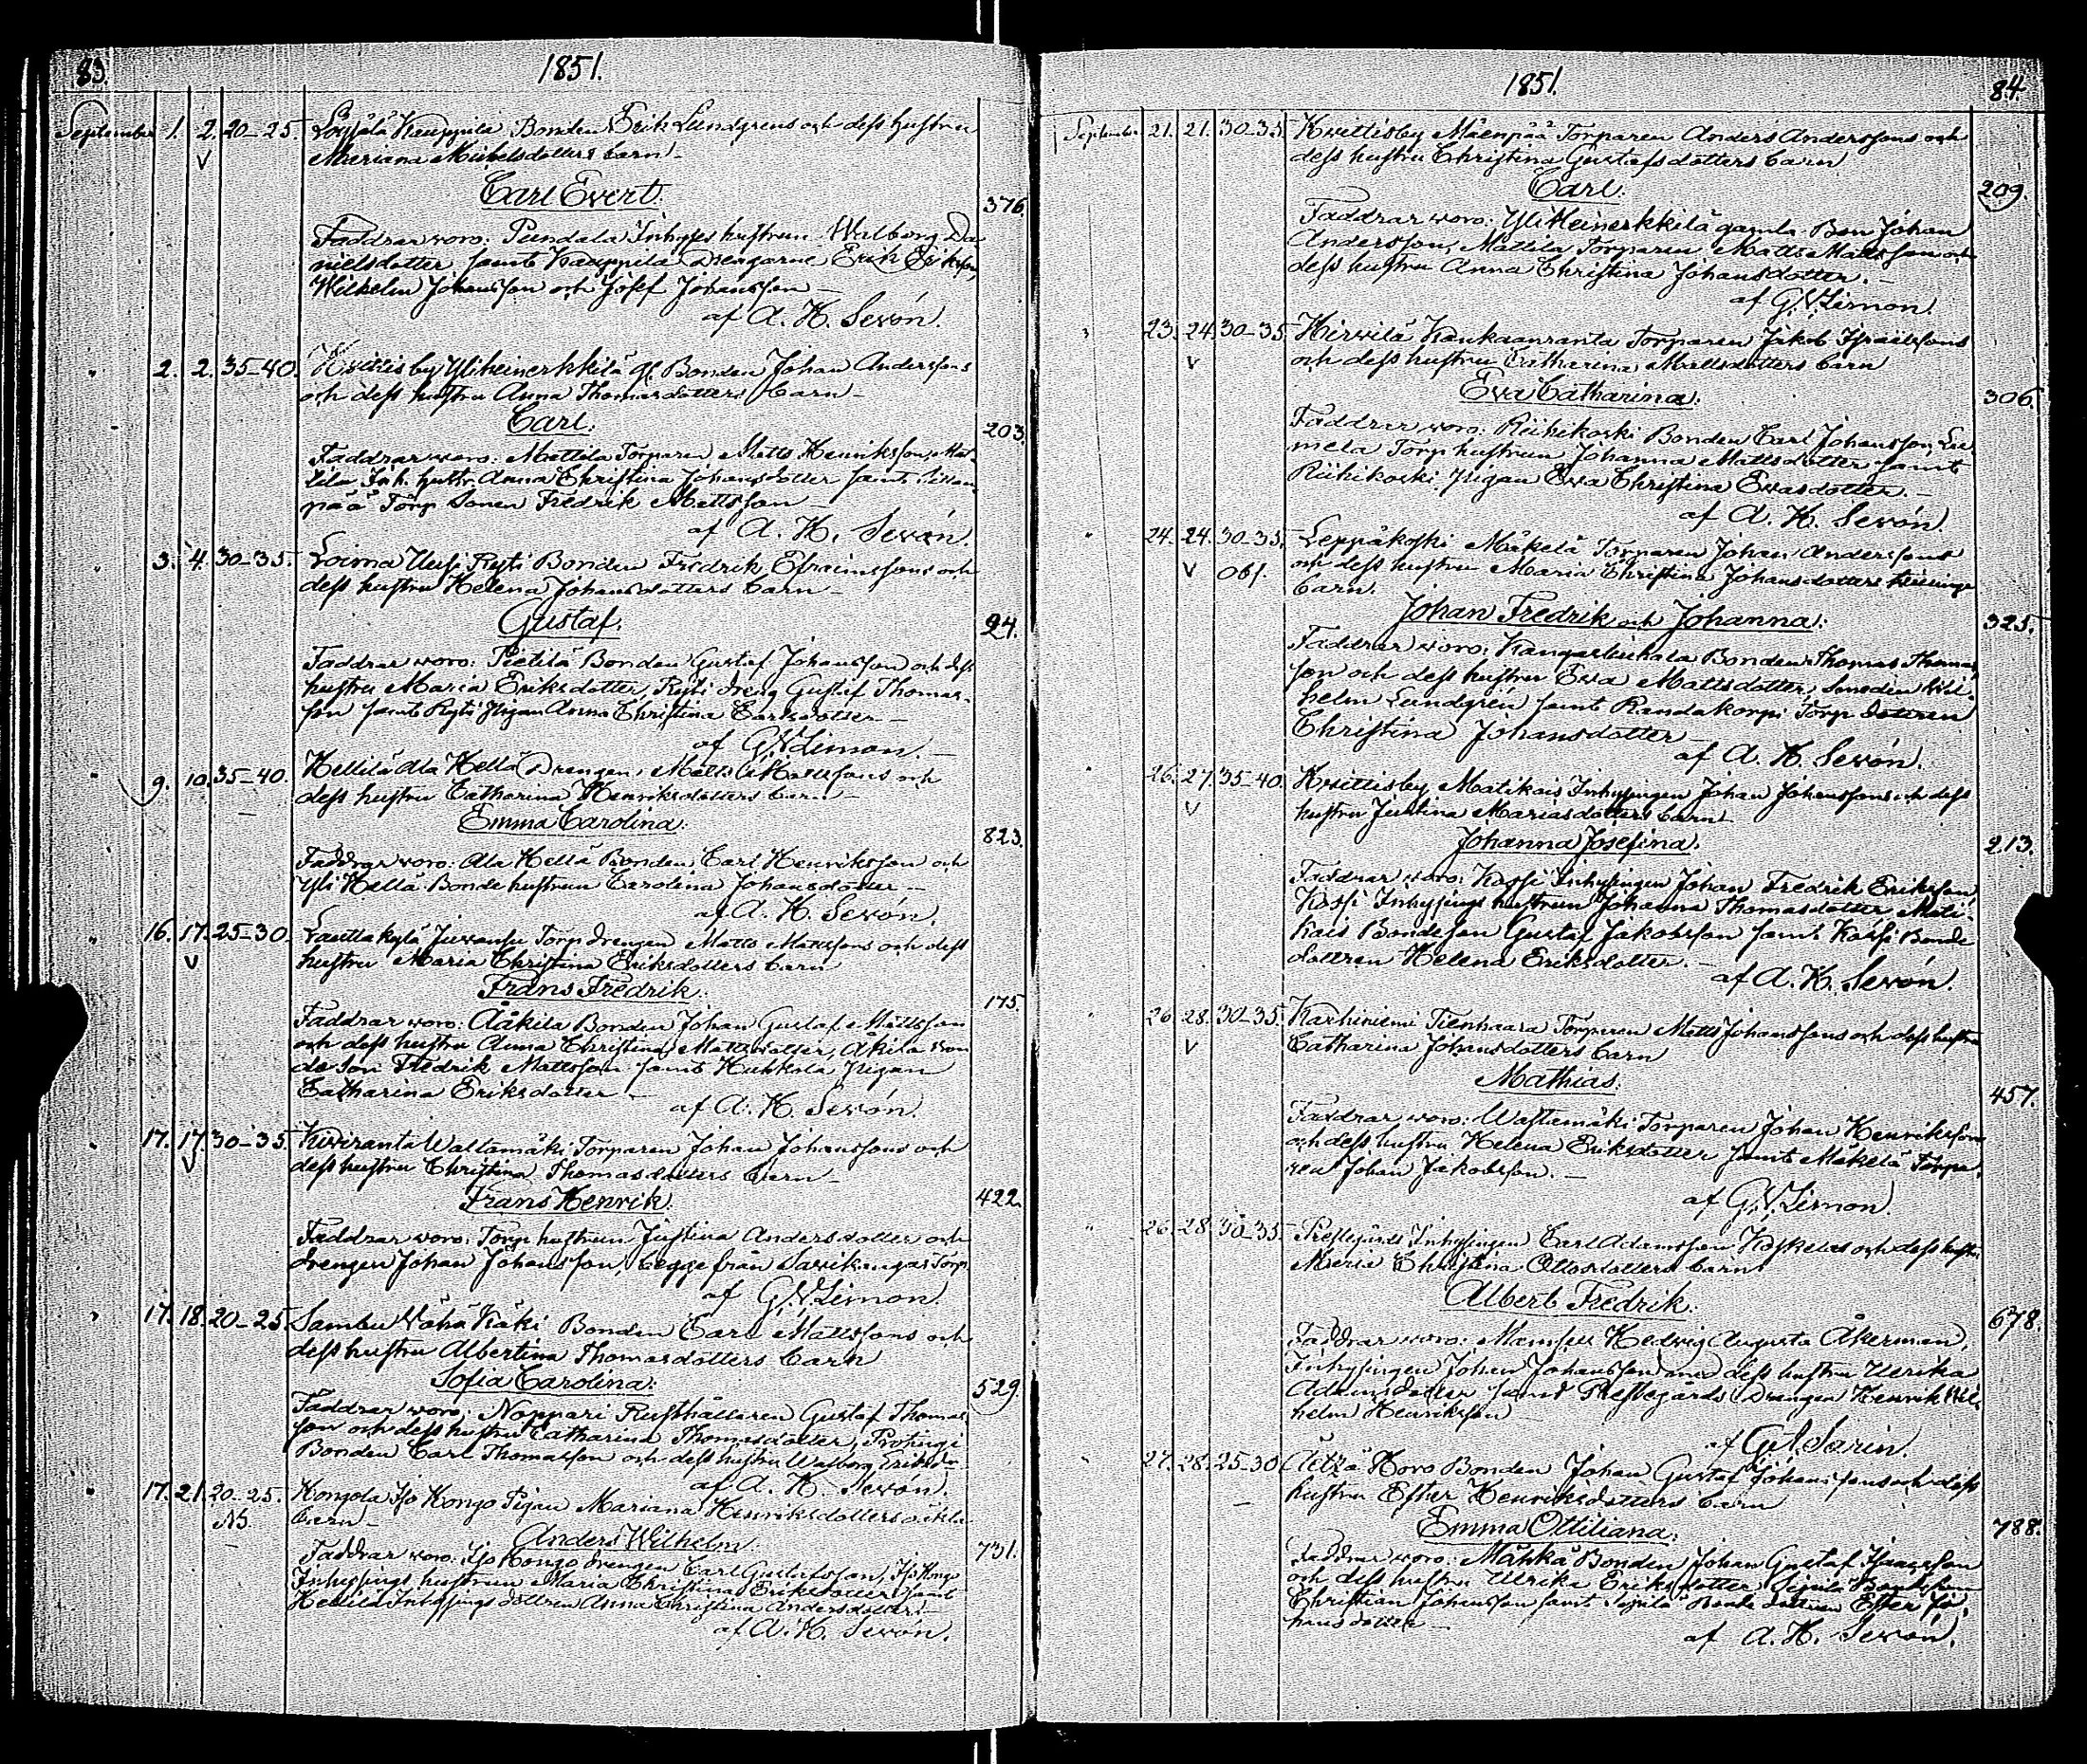 83.
1851.
September 1. 2. 20–25 Löysälä Kauppila Bonden Erik Lundgrens och dess hustru
Mariana Michelsdotters barn –
Carl Evert.
376.
Faddrar voro: Pundala Inhyses hustrun Walborg Da
nielsdotter samt Kauppila Drengarne Erik Eriksson,
Wilhelm Johansson och Josef Johansson –
af A. H. Sevón.
" 2. 2. 35–40. Kvittisby Yliheinerkkilä gl. Bonden Johan Anderssons
och dess hustru Anna Thomasdotters barn –
Carl.
203.
Faddrar voro: Mattila Torparen Matts Henriksson, Mat-
tila Inh. hustr. Anna Christina Johansdotter samt
pää Torp Sonen Fredrik Mattsson –
af A. H. Sevón.
" 3. 4. 30–35. Loima Uusi Ryti Bonden Fredrik Efraimssons och
dess hustru Helena Johansdotters barn –
Gustaf.
24.
Faddrar voro: Pietilä Bonden Gustaf Johansson och dess
hustru Maria Eriksdotter, Ryti dreng Gustaf Thomas-
son samt Ryti Pigan Anna Christina Carlsdotter –
af G. V. Limon. –
" 9. 10. 35–40. Hellilä Ala Hellä Drengen Matts Mattssons och
dess hustru Catharina Henriksdotters barn –
Emma Carolina.
823.
Faddrar voro: Ala Hellä Bonden Carl Henriksson och
Yli Hellä Bonde hustrun Carolina Johansdotter –
af A. H. Sevón.
" 16. 17. 25–30. Lauttakylä Juvansu Torp drengen Matts Mattssons och dess
hustru Maria Christina Eriksdotters barn
Frans Fredrik.
175.
Faddrar voro: Ååkila Bonden Johan Gustaf Mattsson
och dess hustru Anna Christina Mattsdotter, Åkila Bon
de son Fredrik Mattsson samt Huhkola Pigan
Catharina Eriksdotter –
af A. H. Sevón.
" 17. 17. 30–35. Kiviranta Waltamäki Torparen Johan Johanssons och
dess hustru Christina Thomasdotters barn –
Frans Henrik.
422.
Faddrar voro: Torp hustrun Justina Andersdotter och
drengen Johan Johansson, begge från Savikangas Torp
af G. V. Limon.
" 17. 18. 20–25. Sambu Vähä Käki Bonden Carl Mattssons och
dess hustru Albertina Thomasdotters barn
Sofia Carolina.
529.
Faddrar voro: Noppari Rusthållaren Gustaf Thomas
son och dess hustru Catharina Thomasdotter,
Bonden Carl Thomasson och dess hustru Walborg
af A. H. Sevón.
" 17. 21. 20–25. Kongola Iso Kongo Pigan Mariana Henriksdotters oäkta
N. barn –
Anders Wilhelm.
731.
Faddrar voro: Iso Kongo drengen Carl Gustafsson, Iso Kongo
Inhysings hustrun Maria Christina Eriksdotter samt
Inhysings dottren Anna Christina Andersdotter –
af A. H. Sevón.
1851.
84.
September 21. 21. 30–35. Kvittisby Mäenpää Torparen Anders Anderssons och
dess hustru Christina Gustafsdotters barn
Carl.
209.
Faddrar voro: Yli Heinerkkilä gamla Bon Johan
Andersson, Mattila Torparen Matts Mattsson och
dess hustru Anna Christina Johansdotter. –
af G. V. Limon.
" 23. 24. 30–35. Hirvilä Kaukaanranta Torparen Jakob Israelssons
och dess hustru Catharina Mattsdotters barn
Eva Catharina.
306.
Faddrar voro: Riihikoski Bonden Carl Johansson,
mela Torp hustrun Johanna Mattsdotter samt
Riihikoski Pigan Eva Christina Evasdotter. –
af A. H. Sevón.
" 24. 24. 30–35. Leppäkoski Mäkelä Torparen Johan Anderssons
Obs. och dess hustru Maria Christina Johansdotters tvillinge
barn.
Johan Fredrik och Johanna.
325.
Faddrar voro: Bonden Thomas Thomas
son och dess hustru Eva Mattsdotter, Smeden Wil-
helm Lundgrén samt Randakorpi Torp dottren
Christina Johansdotter –
af A. H. Sevón.
" 26. 27. 35–40. Kvittisby Matikais Inhysingen Johan Johanssons och dess
hustru Justina Mariasdotters barn
Johanna Josefina.
213.
Faddrar voro: Kassi Inhysingen Johan Fredrik Eriksson,
Kassi Inhysings hustrun Johanna Thomasdotter, Mati-
kais Bondeson Gustaf Jakobsson samt Kassi Bonde
dottren Helena Eriksdotter. –
af A. H. Sevón.
" 26. 28. 30–35. Karhiniemi Tienhaara Torparen Matts Johanssons och dess hustru
Catharina Johansdotters barn
Mathias.
457.
Faddrar voro: Wastamäki Torparen Johan Henriksson
och dess hustru Helena Eriksdotter samt Mäkelä Torpa-
ren Johan Jakobsson. –
af G. V. Limon.
" 26. 28. 30–35. Prestgårds Inhysingen Carl Adamsson Koskelas och dess hustru
Maria Christina Ottosdotters barn
Albert Fredrik.
678.
Faddrar voro: Mamsell Hedvig Augusta Åkerman,
Inhysingen Johan Johansson med dess hustru Ulrika
Adamsdotter samt Prestegårds Drengen Henrik Wil
helm Henriksson
af G. A. Sarin.
" 27. 28. 25–30. Äetsä Horo Bonden Johan Gustaf Johanssons och dess
hustru Esther Henriksdotters barn
Emma Ottiliana.
788.
Faddrar voro: Mähkä Bonden Johan Gustaf Isaacsson
och dess hustru Ulrika Eriksdotter,
Christian Johansson samt Bonde dottren Ester Jo-
hansdotter –
af A. H. Sevón.